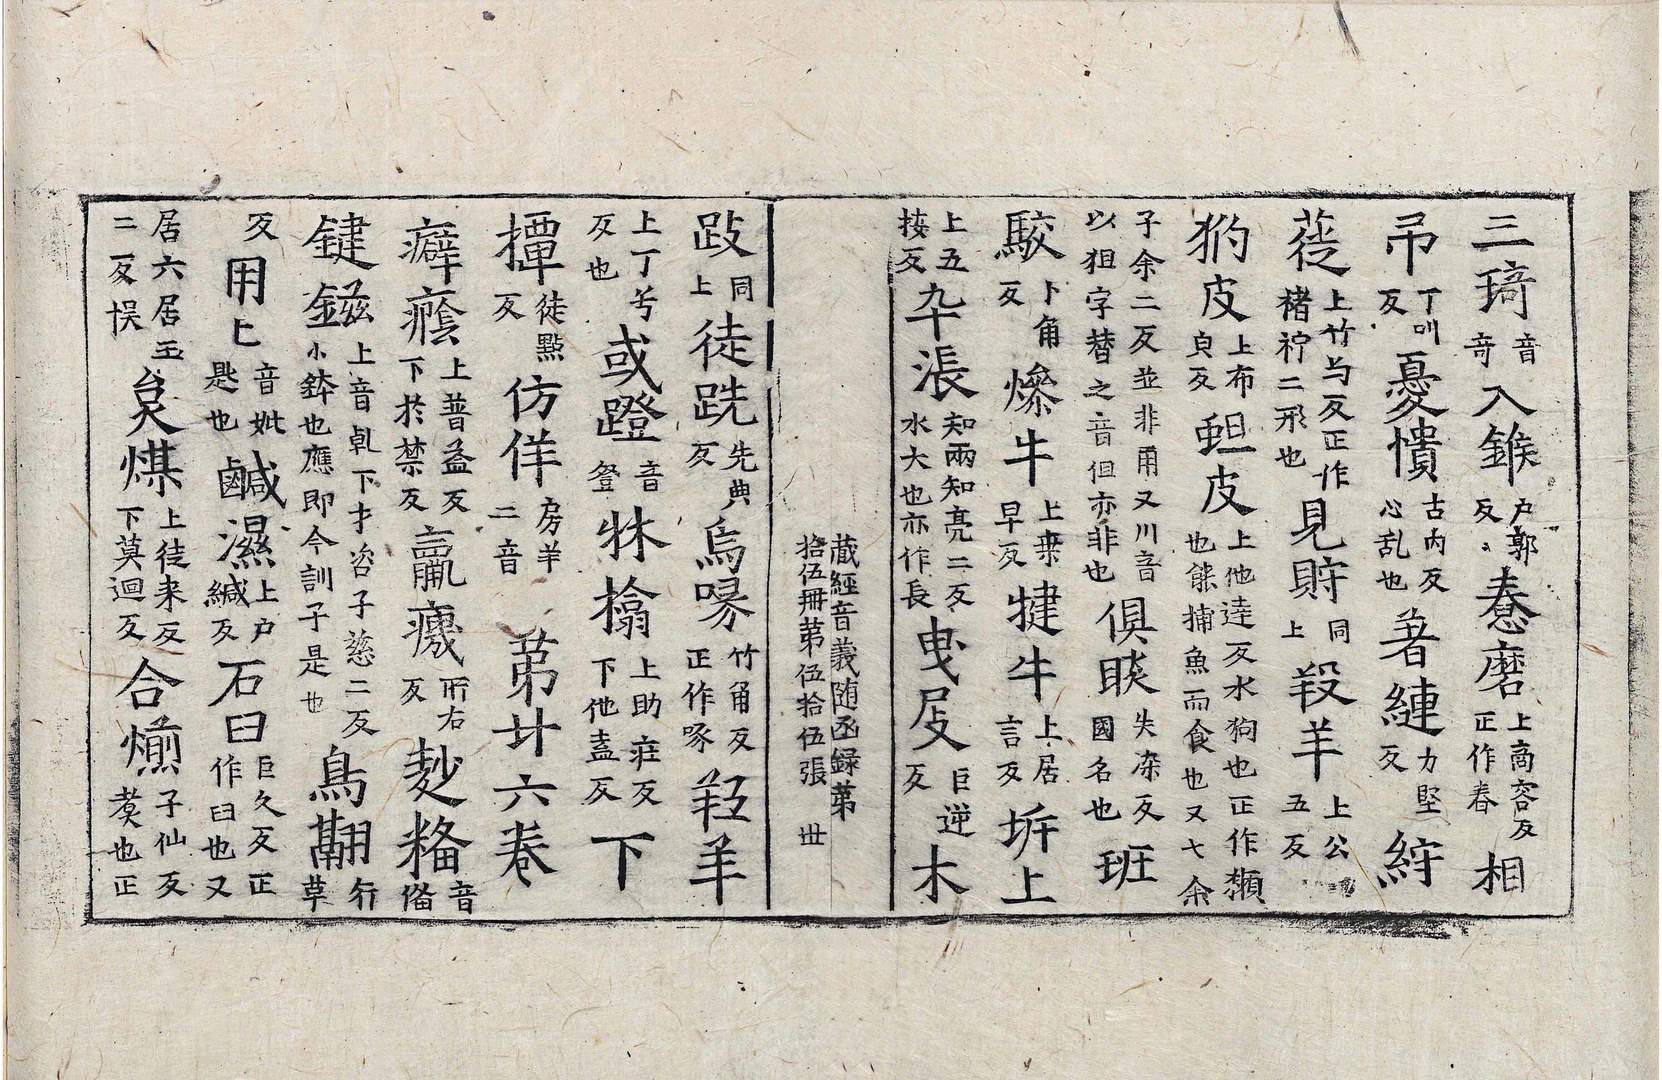 三琦音奇入鍭户郭反憃磨上啇容反正作舂相
吊丁叫反憂憒古内反心乱也着縺力堅反紵
莚上竹与反正作褚䘢二形也見貯同上羖羊上公五反
犳皮上布皃反蚎皮上他達反水狗也正作獺也能捕魚而食也又七余
子余二反並非用又川音以狙字替之音但亦非也俱睒失染反國名也班
駮卜角反㸅牛上桒早反犍牛上居言反㭊上
上五接反卆漲知兩知亮二反水大也亦作長曳屐巨逆反木
蔵經音義随函録苐拾伍冊苐伍拾伍張 丗
跂同上徒跣先典反烏喙竹角反正作啄羖羊
上丁兮反也或蹬音登牀㯓上助疘反下他盍反下
撢徒點反仿佯房羊二音苐廿六卷
癖㾕上普益反下於禁反羸瘦所右反麨糒音俻
鍵鎡上音乹下才咨子慈二反小鉢也應即今訓子是也鳥翮行草
反用匕音妣匙也鹹濕上户緘反石臼巨久反正作臼也又
居六居玉二反悮炱煤上徒来反下莫迴反合煎子仙反𤎅也正